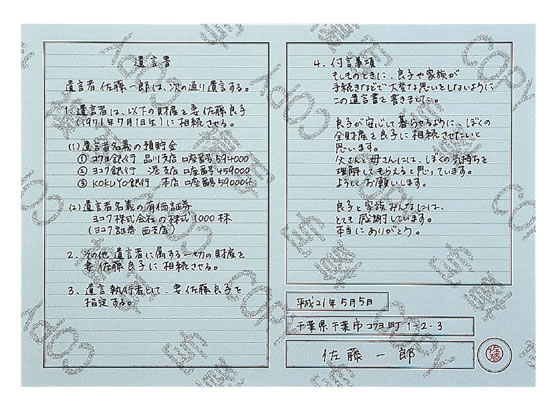 遺言書
遺言者佐藤一郎は、次の通り遺言する。
1、遺言者は、以下の財産を妻佐藤良子
(1971年7月1日生)に相続させる。
(1) 遺言者名義の預貯金
① コクヨ銀行 品川支店 口座番号594000
② ヨコク銀行 港支店 口座番号459000
③ KOKUYO銀行 本店 口座番号590004
(2) 遺言者名義の有価証券
ヨコク株式会社の株式1000株
(ヨコク証券 西支店)
2、その他遺言者に属する一切の財産を
妻佐藤良子に相続させる。
3、遺言執行者として、妻佐藤良子を
指定する。
4、付言事項
もしものときに、良子や家族が
手続きなどで大変な思いをしないように
この遺言書を書きました。
良子が安心して暮らせるように、ぼくの
全財産を良子に相続させたいと
思います。
父さんと母さんには、ぼくの気持ちを
理解してもらえると思っています。
よろしくお願いします。
良子と家族みんなには、
とても感謝しています。
本当にありがとう。
平成21年5月5日
千葉県千葉市コクヨ町1-2-3
佐藤一郎
佐藤
COPY
複写